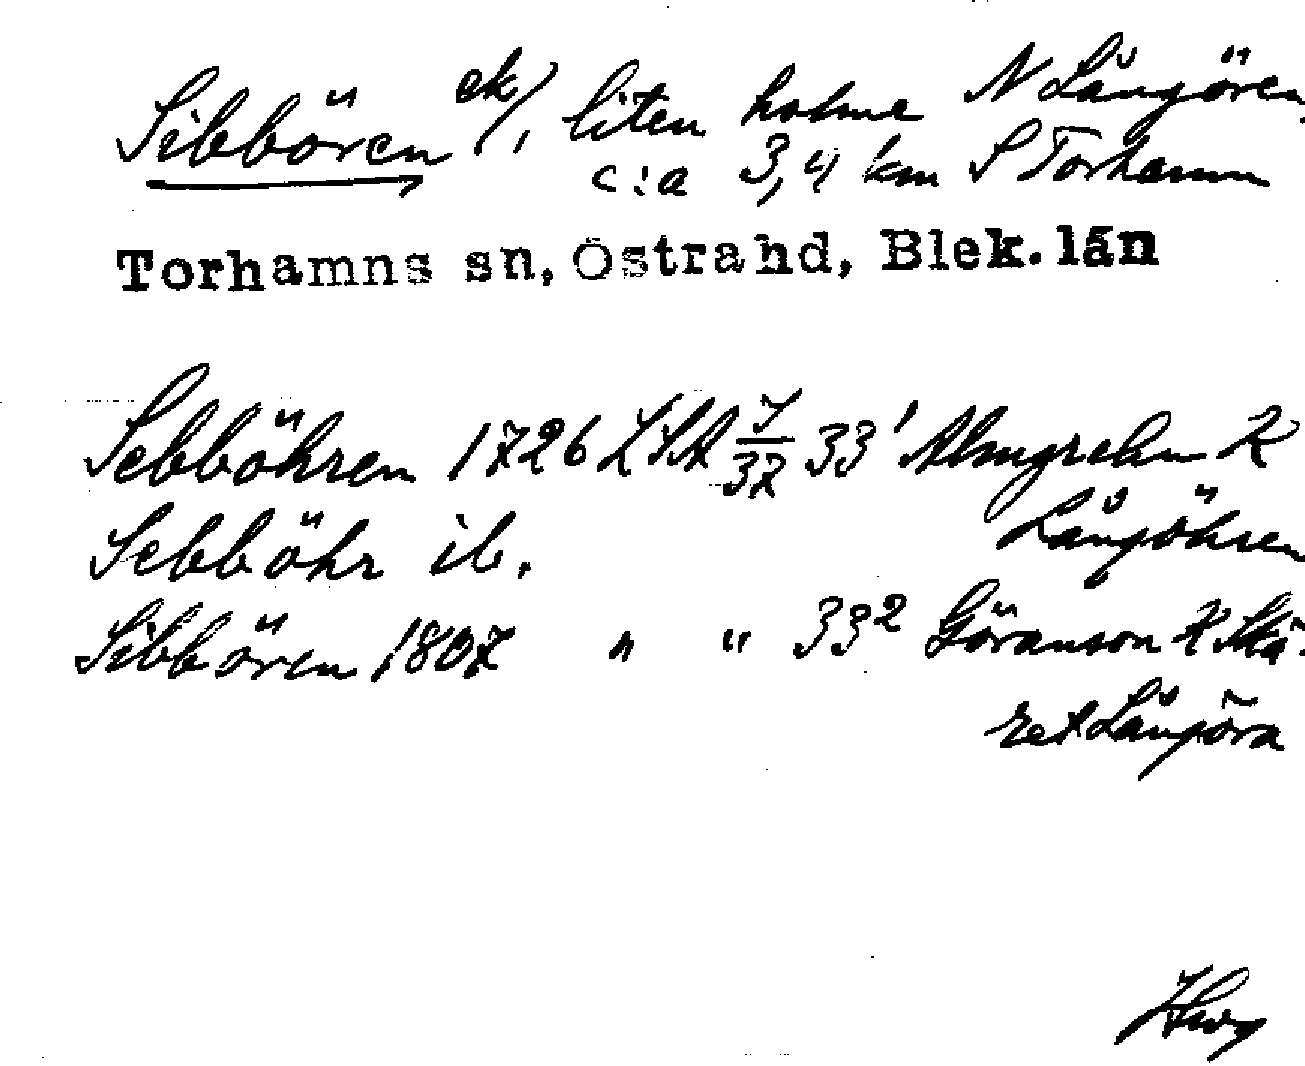 Sibbören ek/, liten holme N Långören,
c:a 3,4 km S Torhamn
Torhamns sn, Östra hd, Blek. län
Sebböhren 1726 LSA J/37 33¹ Almgrehn K
Långöhren
Sebböhr ib.
Sibbören 1807 " " 33² Göranson K Skä-
ret Långöra